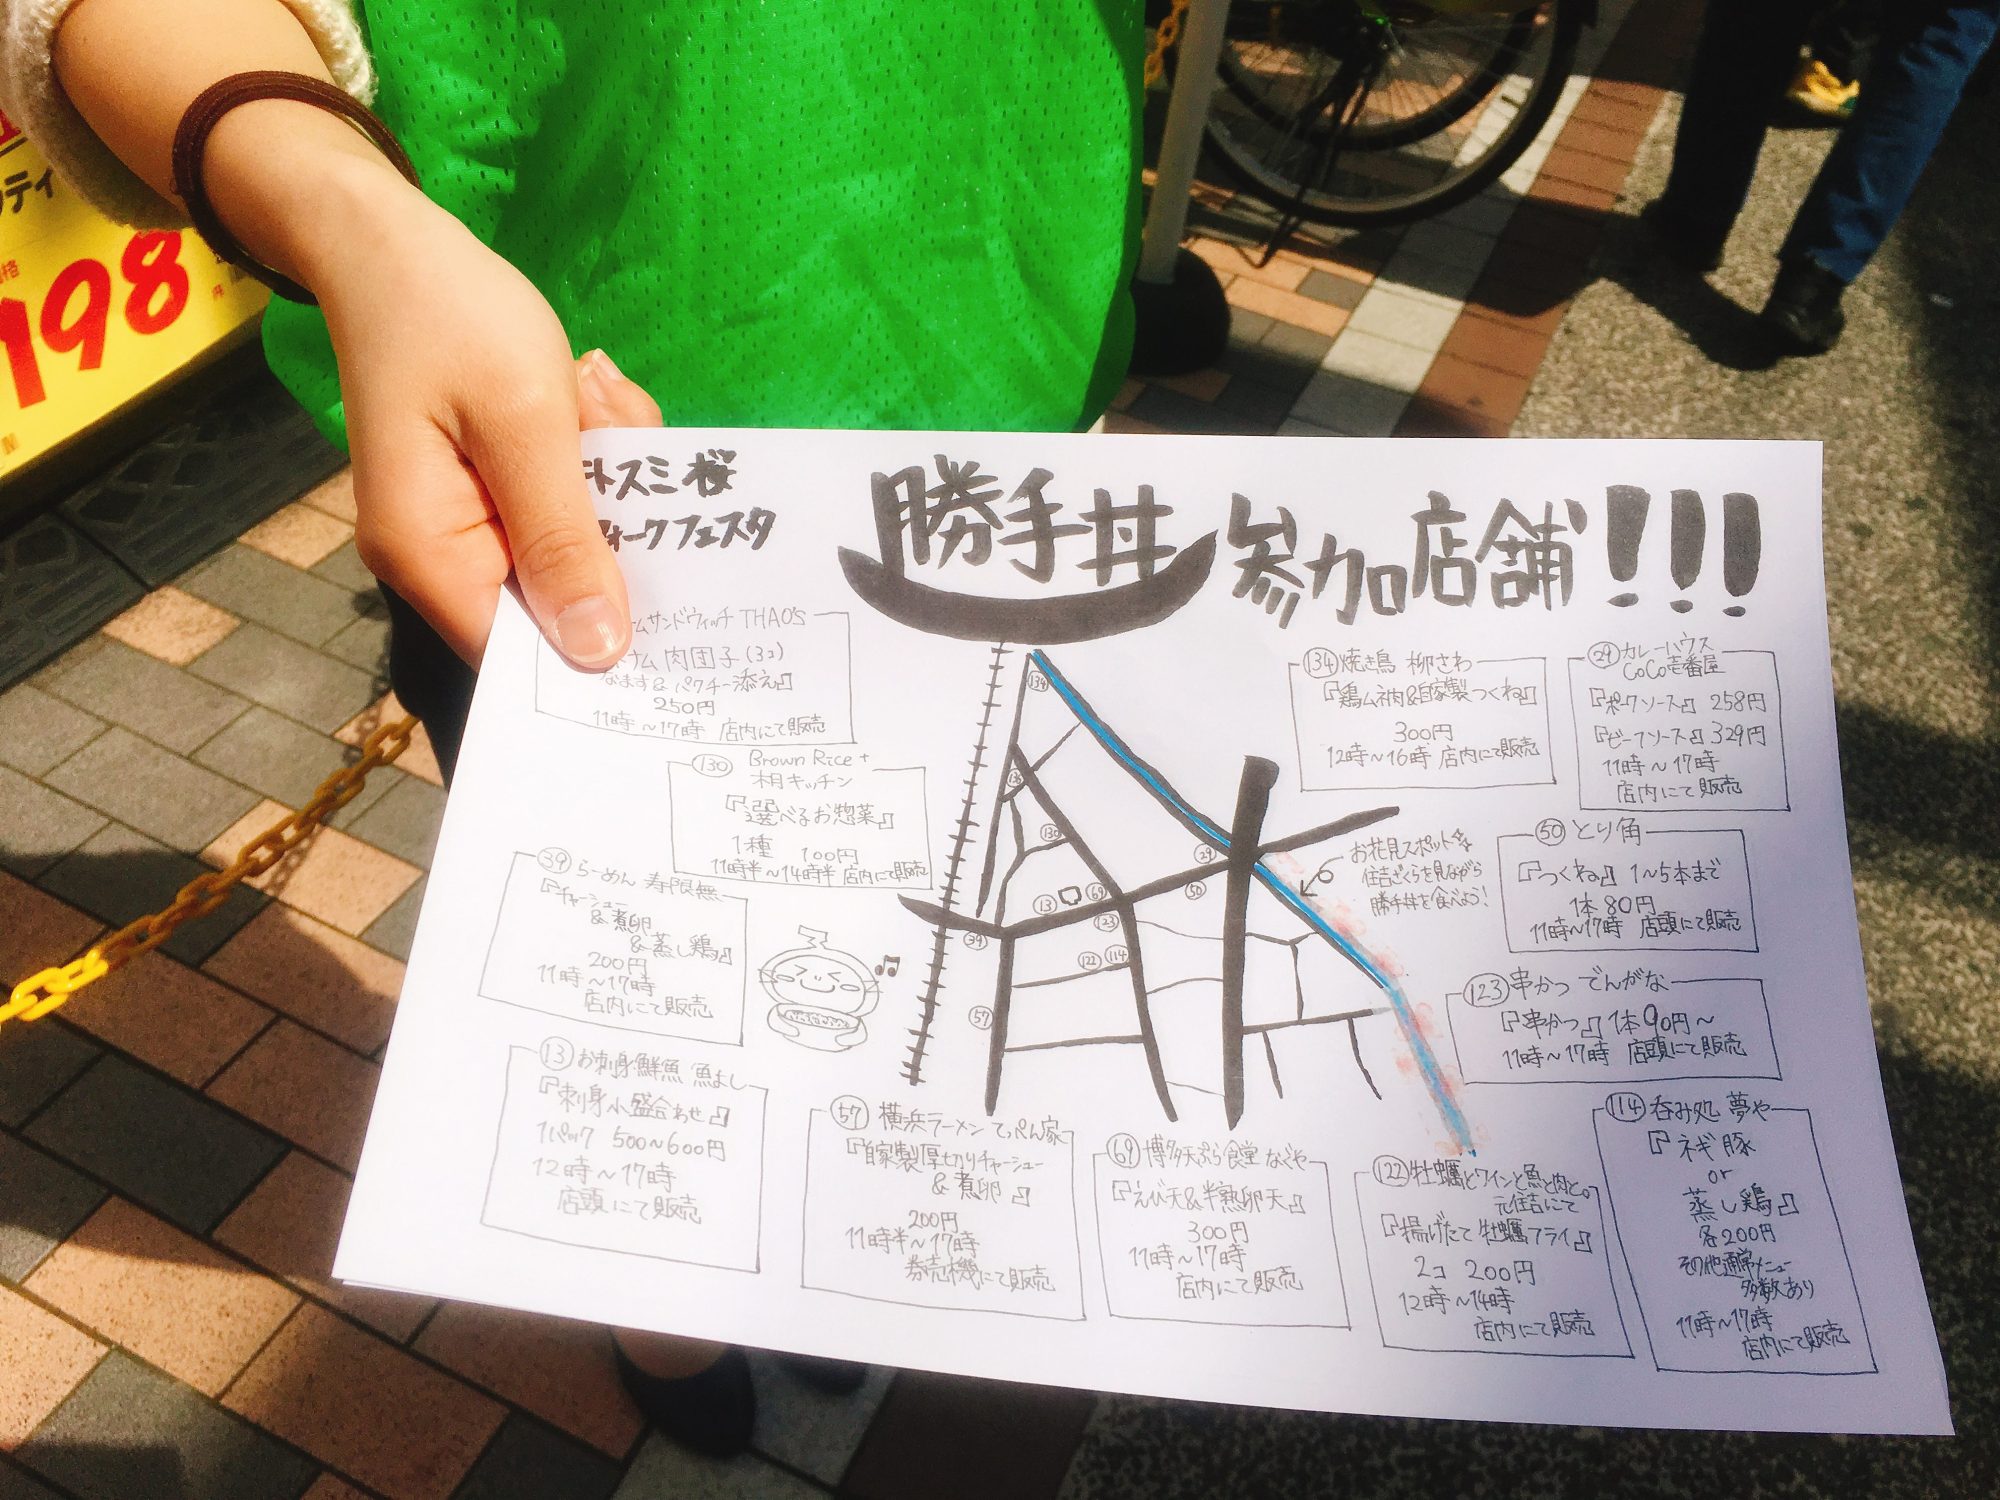 198
円
スミ桜
ォークフェスタ
勝手丼 参加店舗!!!
ムサンドウィッチ THAO'S
ナム 肉団子(3コ)
なます&パクチー添え』
250円
11時～17時 店内にて販売
130 Brown Rice +
『選べるお惣菜』
1種 100円
11時半～14時半 店内にて販売
39 らーめん 寿限無
『チャーシュー
&煮卵
&蒸し鶏』
200円
11時～17時
店内にて販売
13 お刺身鮮魚 魚よし
『刺身小盛合わせ』
1パック 500～600円
12時～17時
店頭にて販売
57 横浜ラーメン てっぺん家
『自家製厚切りチャーシュー
&煮卵』
200円
11時半～17時
券売機にて販売
69 博多天ぷら食堂 なぐや
『えび天&半熟卵天』
300円
11時～17時
店内にて販売
122 牡蠣とワインと魚と肉と。
元住吉にて
『揚げたて牡蠣フライ』
2コ 200円
12時～14時
店内にて販売
114 呑み処 夢や
『ネギ豚
or
蒸し鶏』
各200円
その他通常メニュー
多数あり
11時～17時
店内にて販売
134 焼き鳥 柳さわ
『鶏ムネ肉&自家製つくね』
300円
12時～16時 店内にて販売
29 カレーハウス
CoCo壱番屋
『ポークソース』 258円
『ビーフソース』 329円
11時～17時
店内にて販売
50 とり角
『つくね』 1～5本まで
1本 80円
11時～17時 店頭にて販売
123 串かつ でんがな
『串かつ』 1本90円～
11時～17時 店頭にて販売
お花見スポット
住吉ざくらを見ながら
勝手丼を食べよう!
134
130
29
50
69
13
123
39
122
114
57